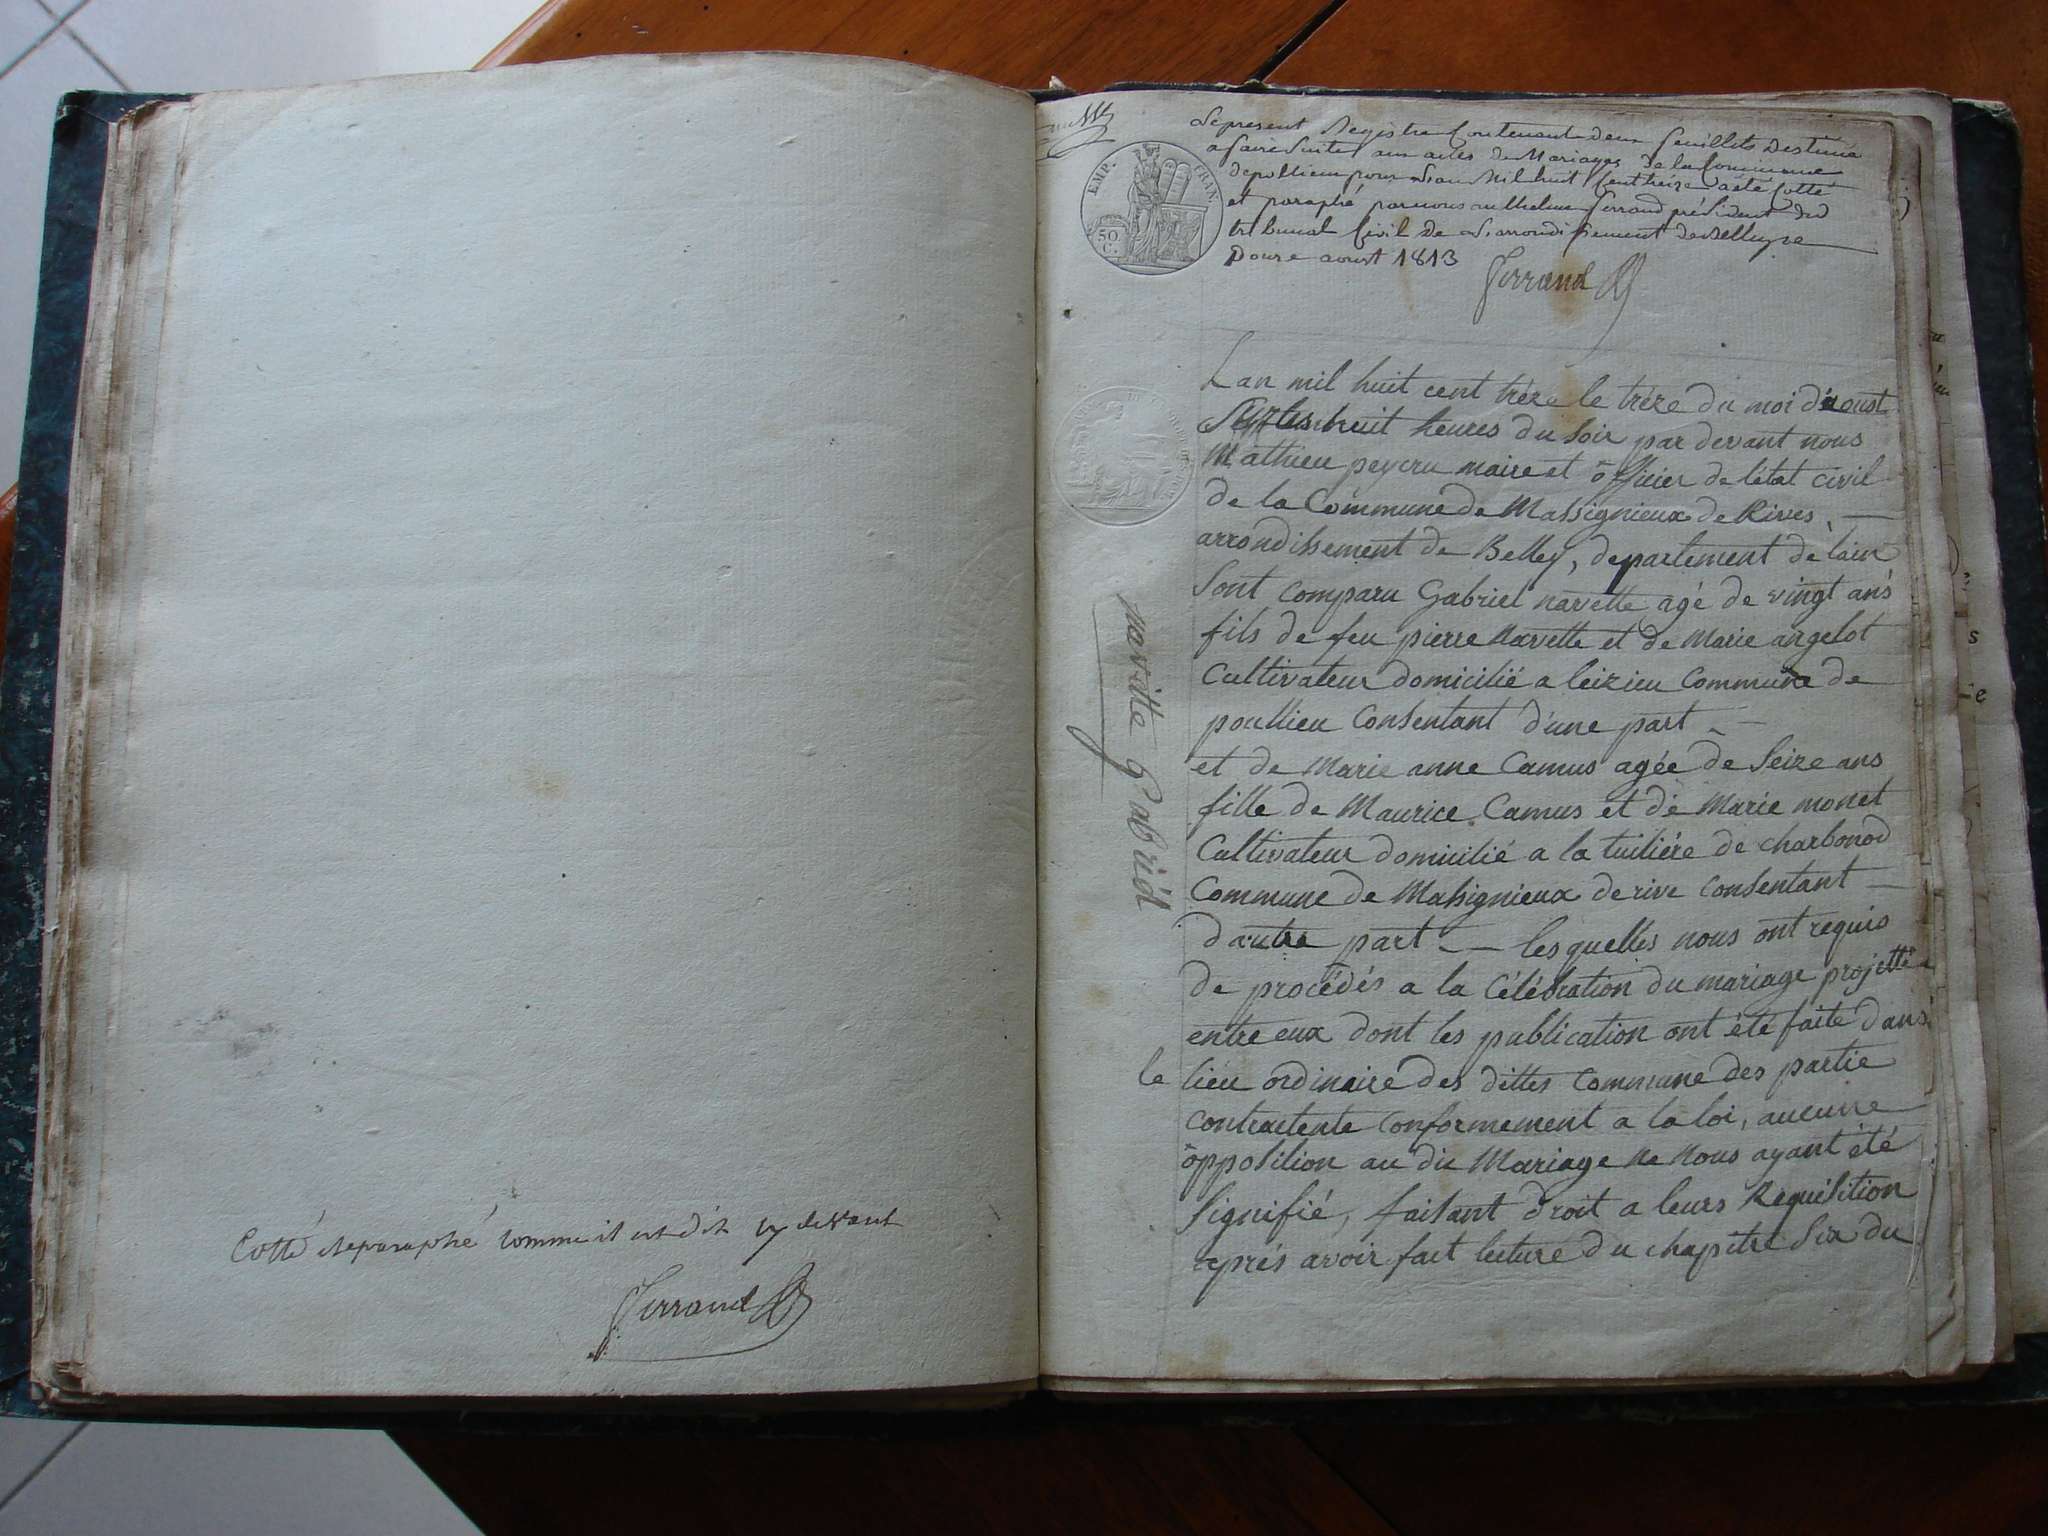 Cotté et paraphé comme il est dit cy devant
Ferrand
EMP. FRAN.
50 C.
Le present Registre Contenant deux feuillets Destiné
a faire Suite aux actes de Mariages de la Commune
de pollieu pour L'an Mil huit Cent treize a été Cotté
et paraphé par nous anthelme ferrand président du
tribunal Civil de L'arrondissement de Belley ce
Douze aoust 1813
Ferrand
navette Gabriel
Lan mil huit cent tréze le tréze du moi d'aoust
Sur les huit heures du soir par devant nous
Mathieu peycru maire et officier de létat civil
de la Commune de Massignieux de Rives, —
arrondissement de Belley, departement de lain
Sont comparu Gabriel navette agé de vingt ans
fils de feu pierre Navette et de Marie angelot
Cultivateur domicilié a leizieu Commune de
poullieu Consentant d'une part —
et de Marie anne Camus agée de Seize ans
fille de Maurice Camus et de Marie monet
Cultivateur domicilié a la tuiliére de charbonod
Commune de Massignieux de rive consentant —
dautre part — les quelles nous ont requis
de procédés a la Célébration du mariage projetté
entre eux dont les publication ont été faite dans
le lieu ordinaire des dittes commune des partie
contractente conformement a la loi, aucune
opposition au dit Mariage ne nous ayant été
Signifié, faisant droit a leurs Requisition
aprés avoir fait lecture du chapitre Six du